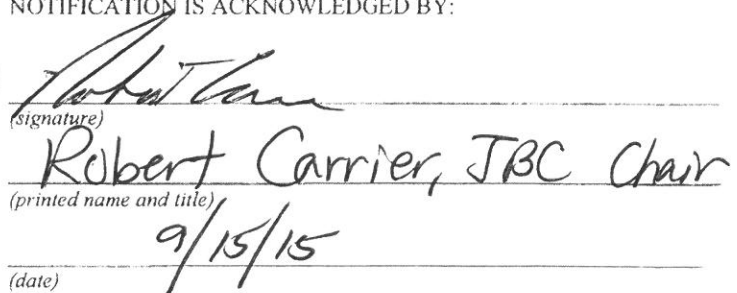 NOTIFICATION IS ACKNOWLEDGED BY:
(signature)
Robert Carrier, JBC Chair
(printed name and title)
9/15/15
(date)